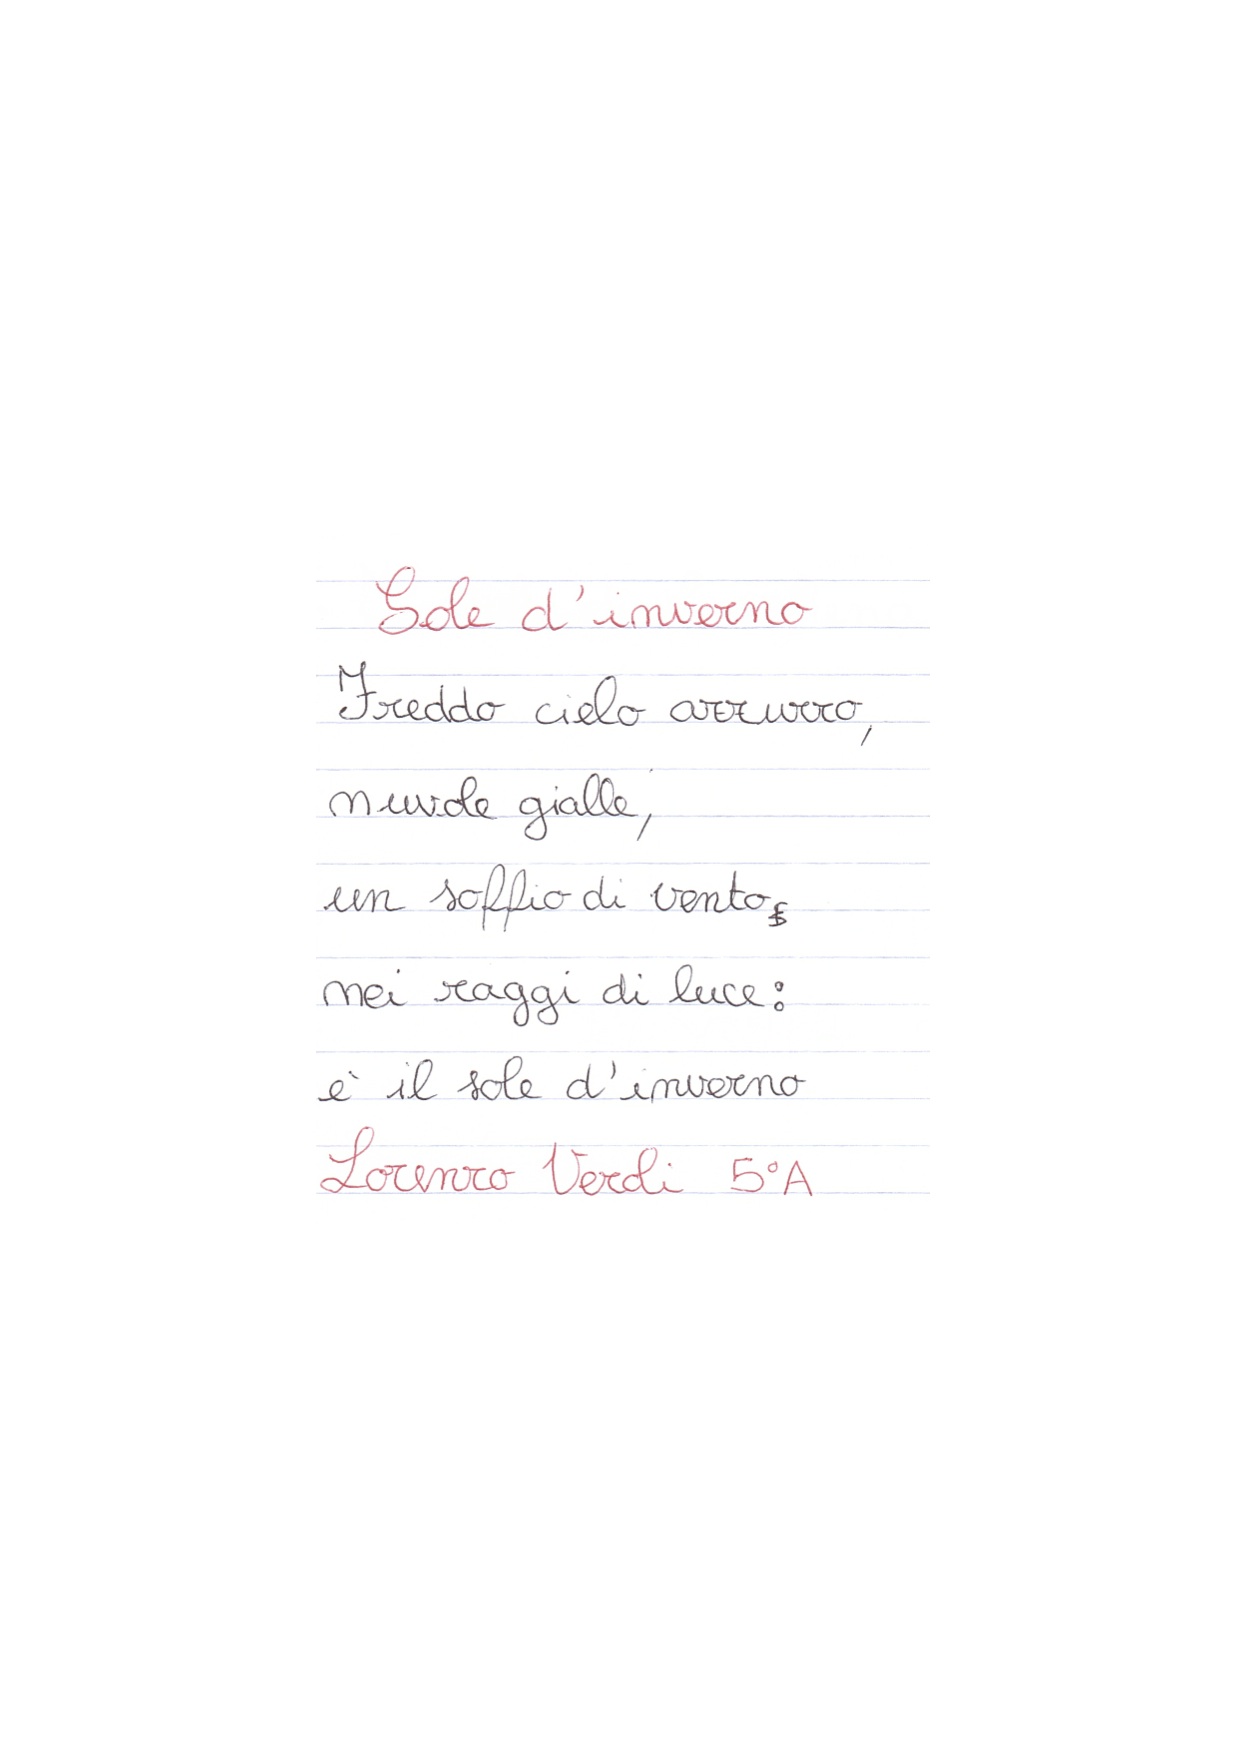 Sole d'inverno
Freddo cielo azzurro,
nuvole gialle,
un soffio di vento
nei raggi di luce:
è il sole d'inverno
Lorenzo Verdi 5°A